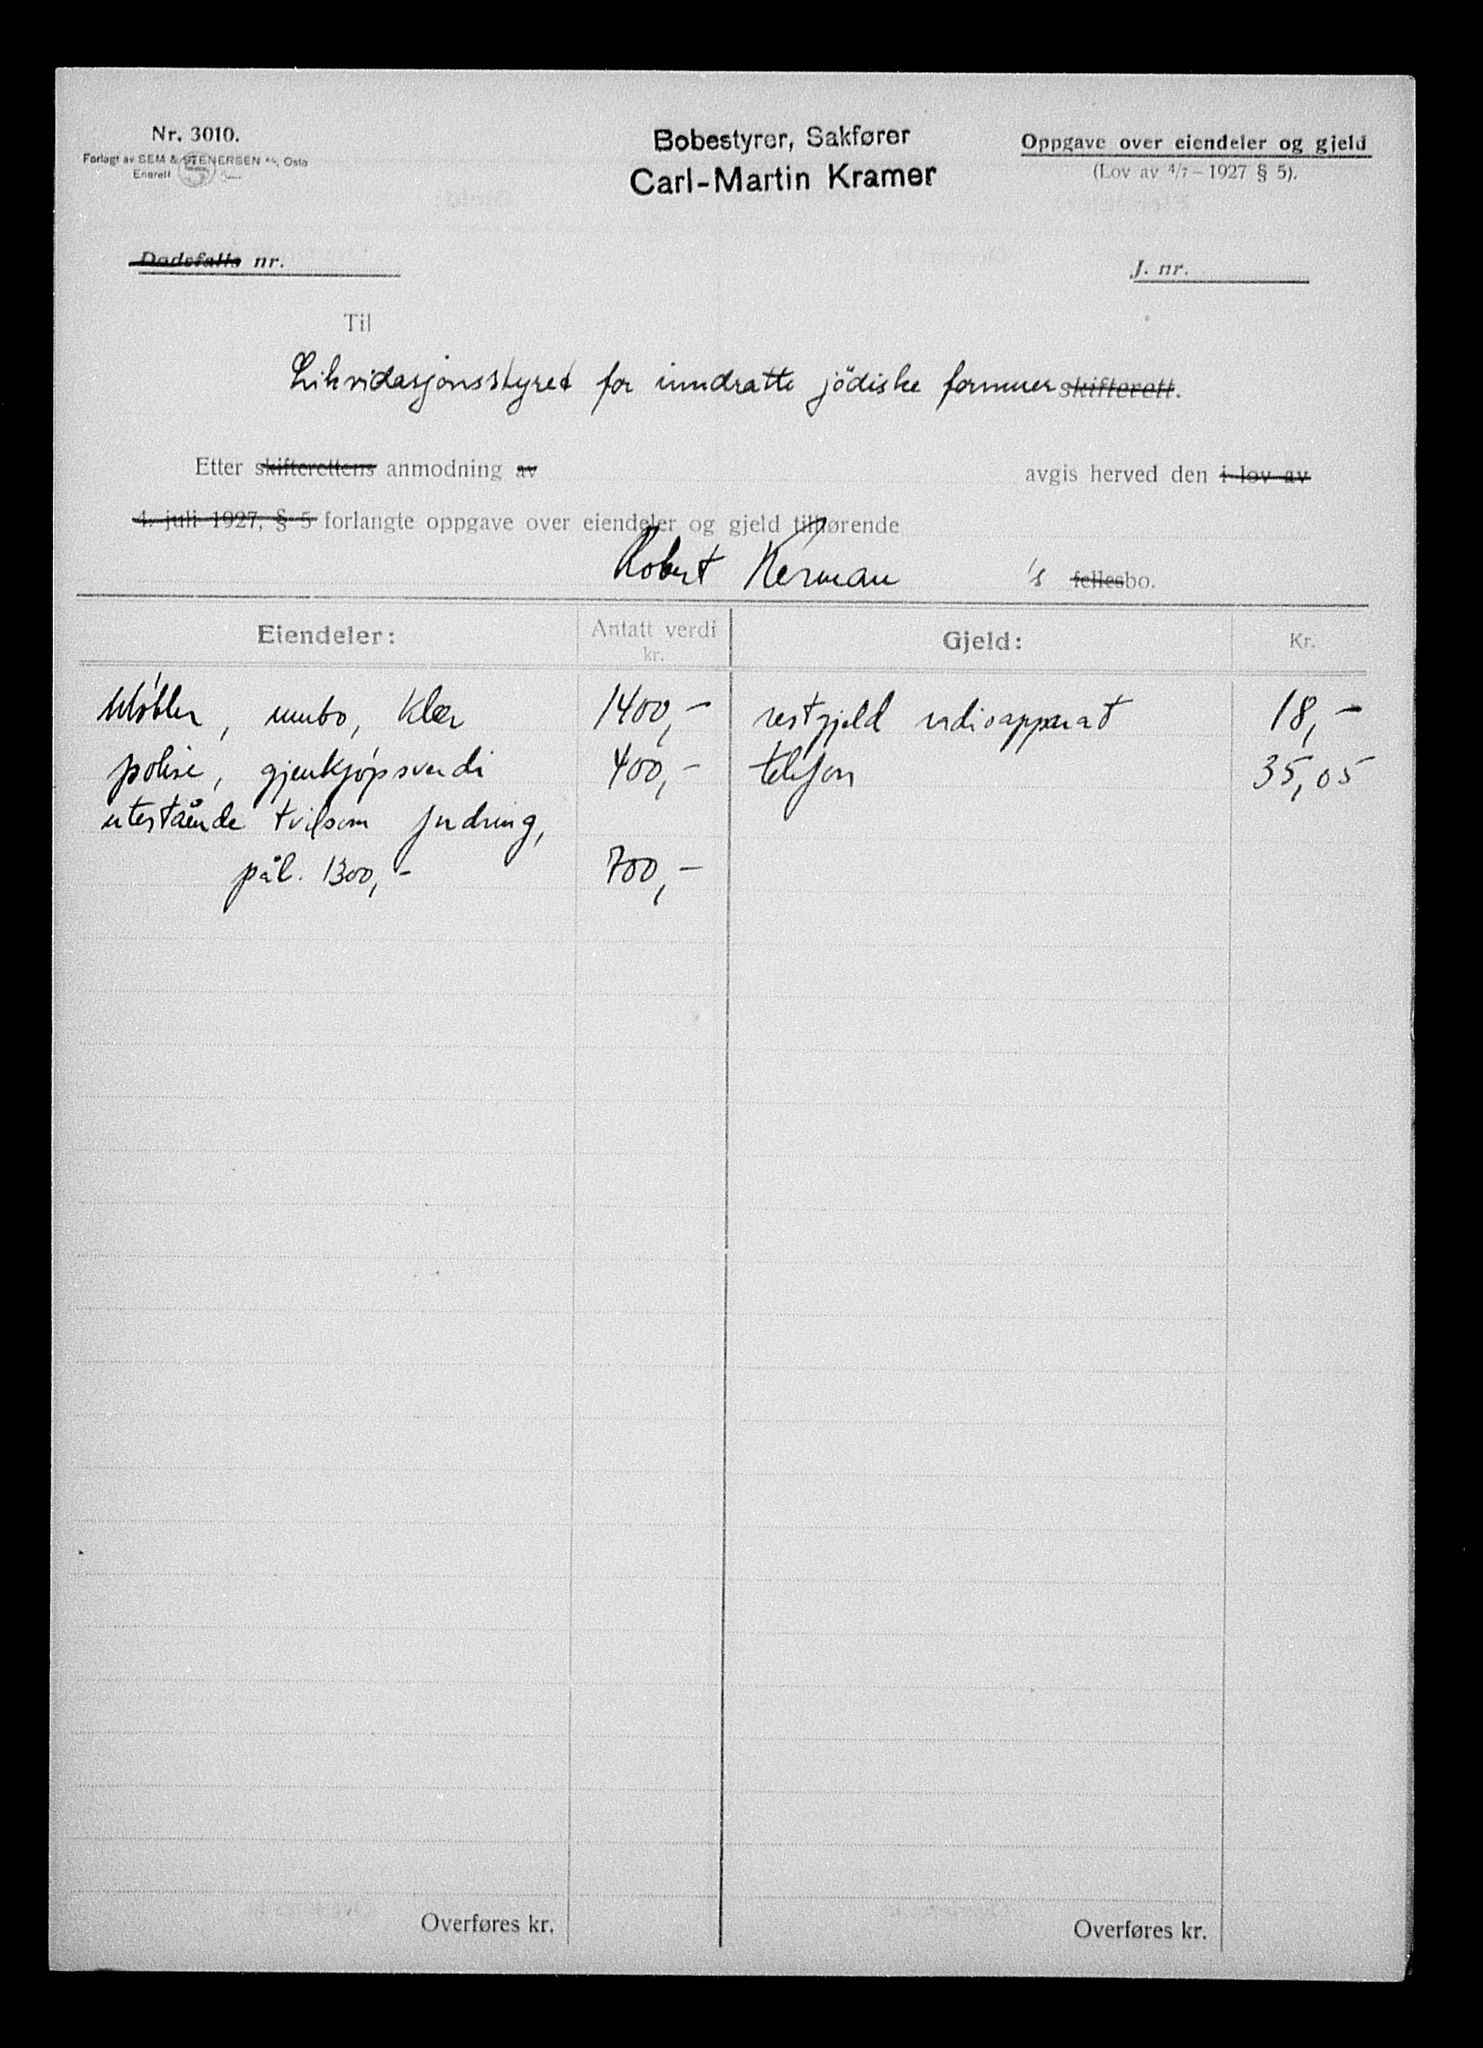 Nr. 3010.
Forlagt av SEM & STENERSEN A/S, Oslo
Enerett
Bobestyrer, Sakfører
Carl-Martin Kramer
Oppgave over eiendeler og gjeld
(Lov av 4/7 – 1927 § 5).
Dødsfalls nr.
J. nr.
Til
Likvidasjonsstyret for inndratte jödiske formuer skifterett.
Etter skifterettens anmodning av avgis herved den i lov av
4. juli 1927, § 5 forlangte oppgave over eiendeler og gjeld tilhørende
Robert Kerman 's fellesbo.
Eiendeler: Antatt verdi kr. Gjeld: Kr.
Møbler, innbo, klær 1400,- restgjeld radioapparat 18,-
polise, gjenkjøpsverdi 400,- telefon 35,05
utestående tvilsom fordring,
pål. 1300,- 700,-
Overføres kr. Overføres kr.